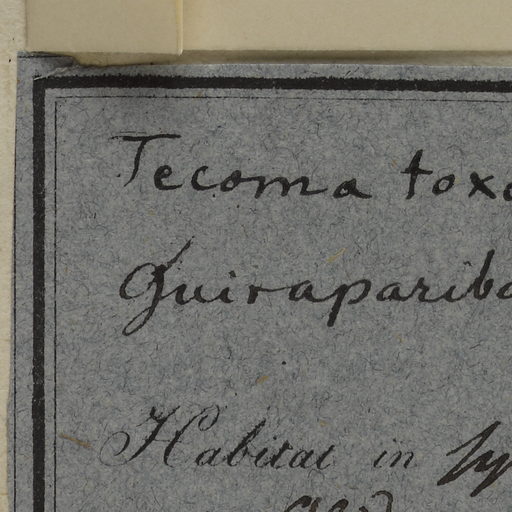 Tecoma toxo
Guirapariba
Habitat in Sy